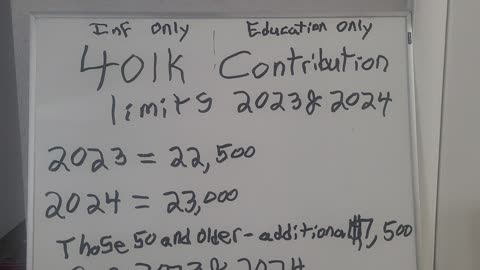 Inf only Education only
401k Contribution
limits 2023 & 2024
2023 = 22,500
2024 = 23,000
Those 50 and older - additional $7,500
2023 & 2024